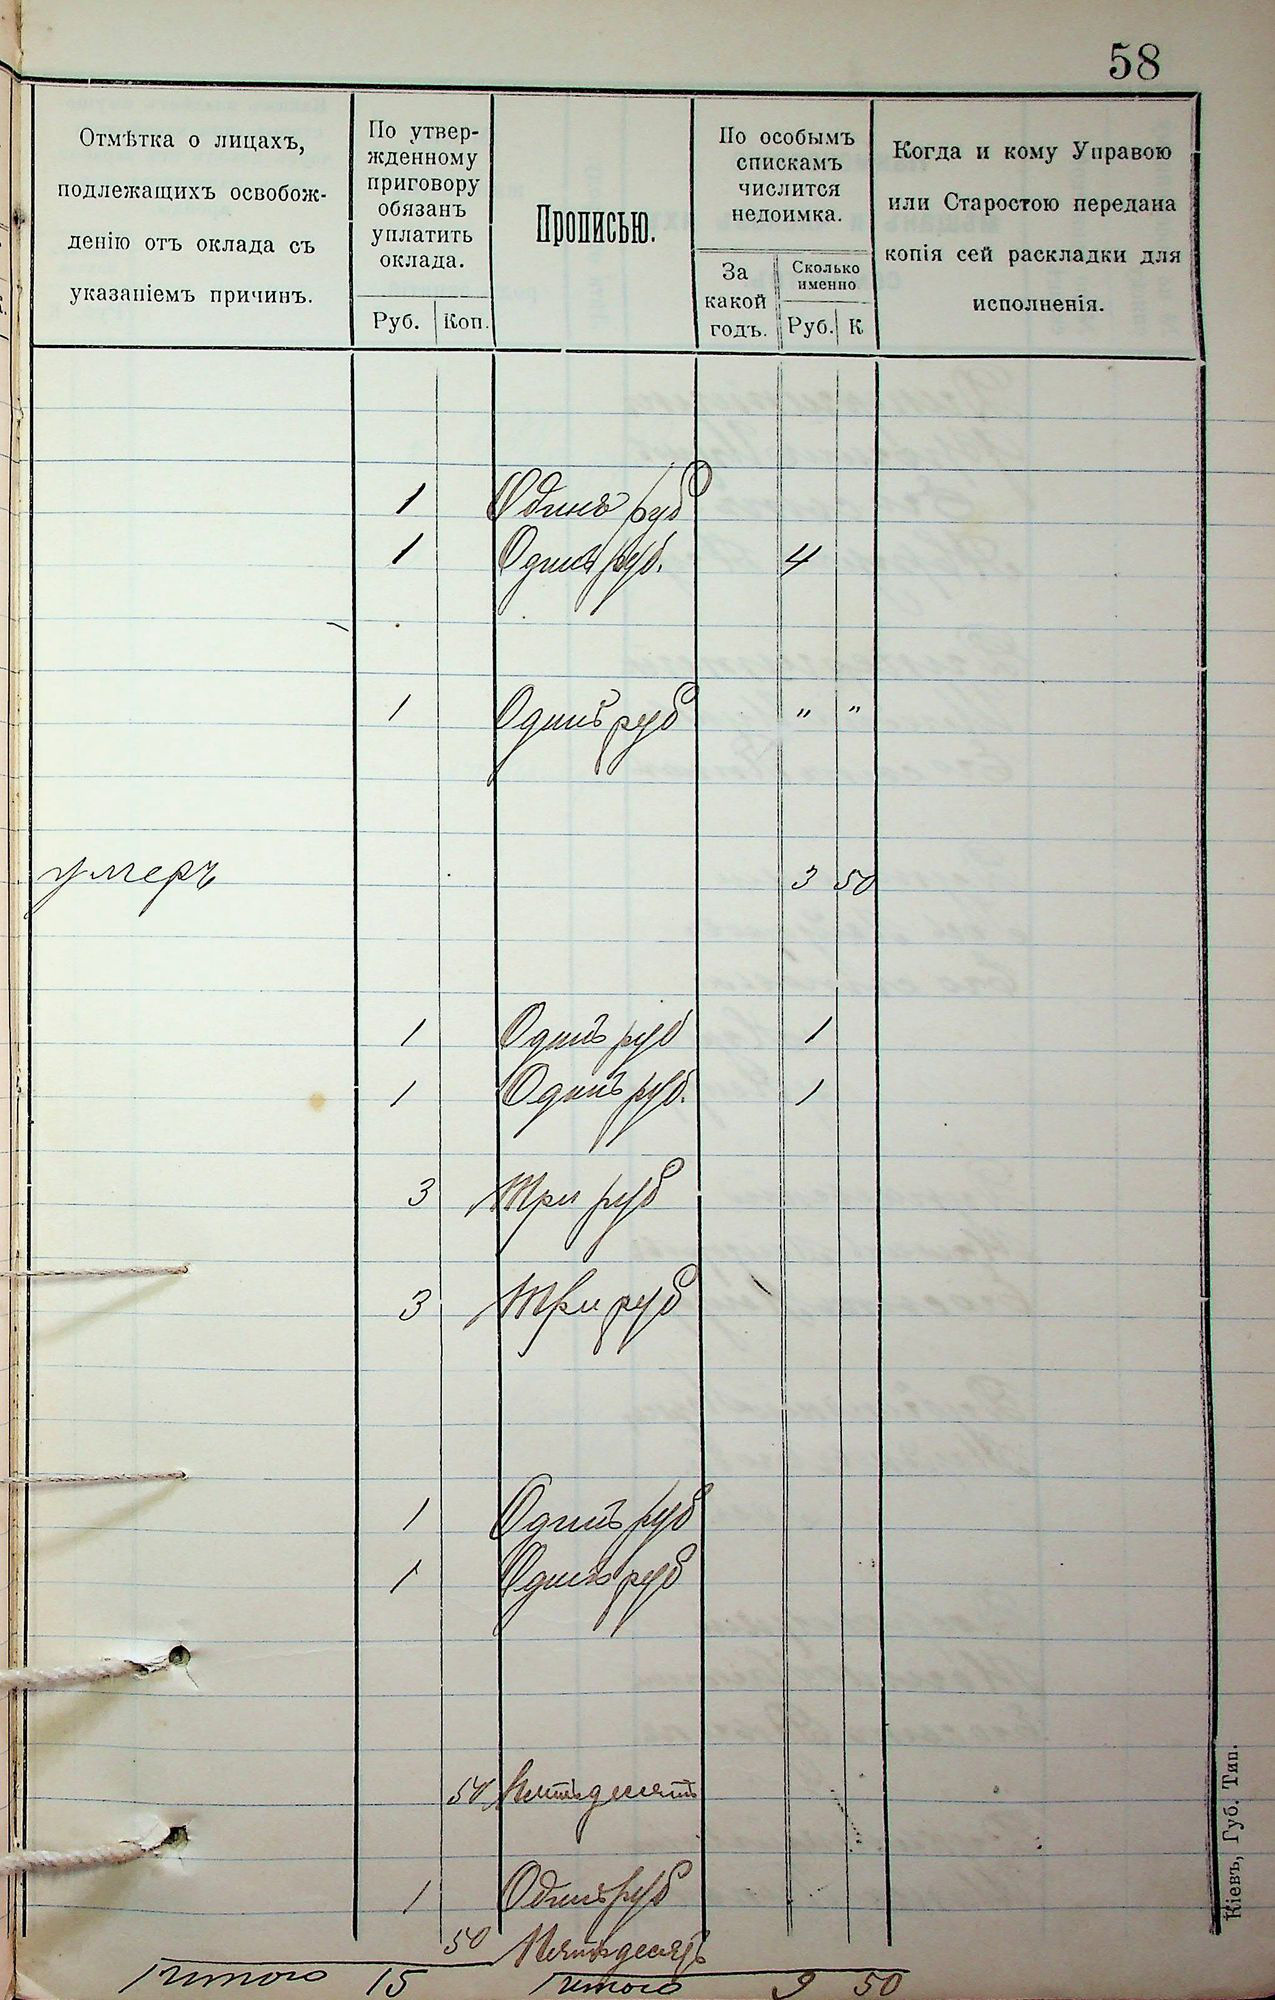 58
Отмѣтка о лицахъ,
подлежащихъ освобож-
денію отъ оклада съ
указаніемъ причинъ.
По утвер-
жденному
приговору
обязанъ
уплатить
оклада.
Руб. Коп.
Прописью.
По особымъ
спискамъ
числится
недоимка.
За
какой
годъ.
Сколько
именно
Руб. К
Когда и кому Управою
или Старостою передана
копія сей раскладки для
исполненія.
1 Одинъ руб
1 Одинъ руб. 4
1 Одинъ руб " "
умеръ 3 50
1 Одинъ руб 1
1 Одинъ руб. 1
3 Три руб
3 Три руб
1 Одинъ руб
1 Одинъ руб
50 Пятьдесятъ
1 Одинъ руб
50 Пятьдесятъ
Итого 15 Итого 9 50
Кіевъ, Губ. Тип.